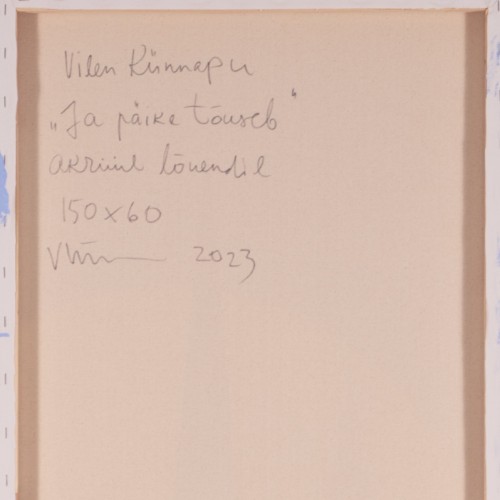 Vilen Künnapu
„Ja päike tõuseb"
akrüül lõuendil
150x60
2023